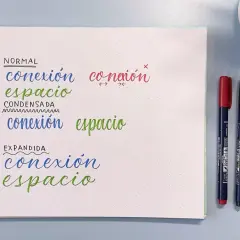 NORMAL
conexión conexión
espacio
CONDENSADA
conexión espacio
EXPANDIDA
conexión
espacio